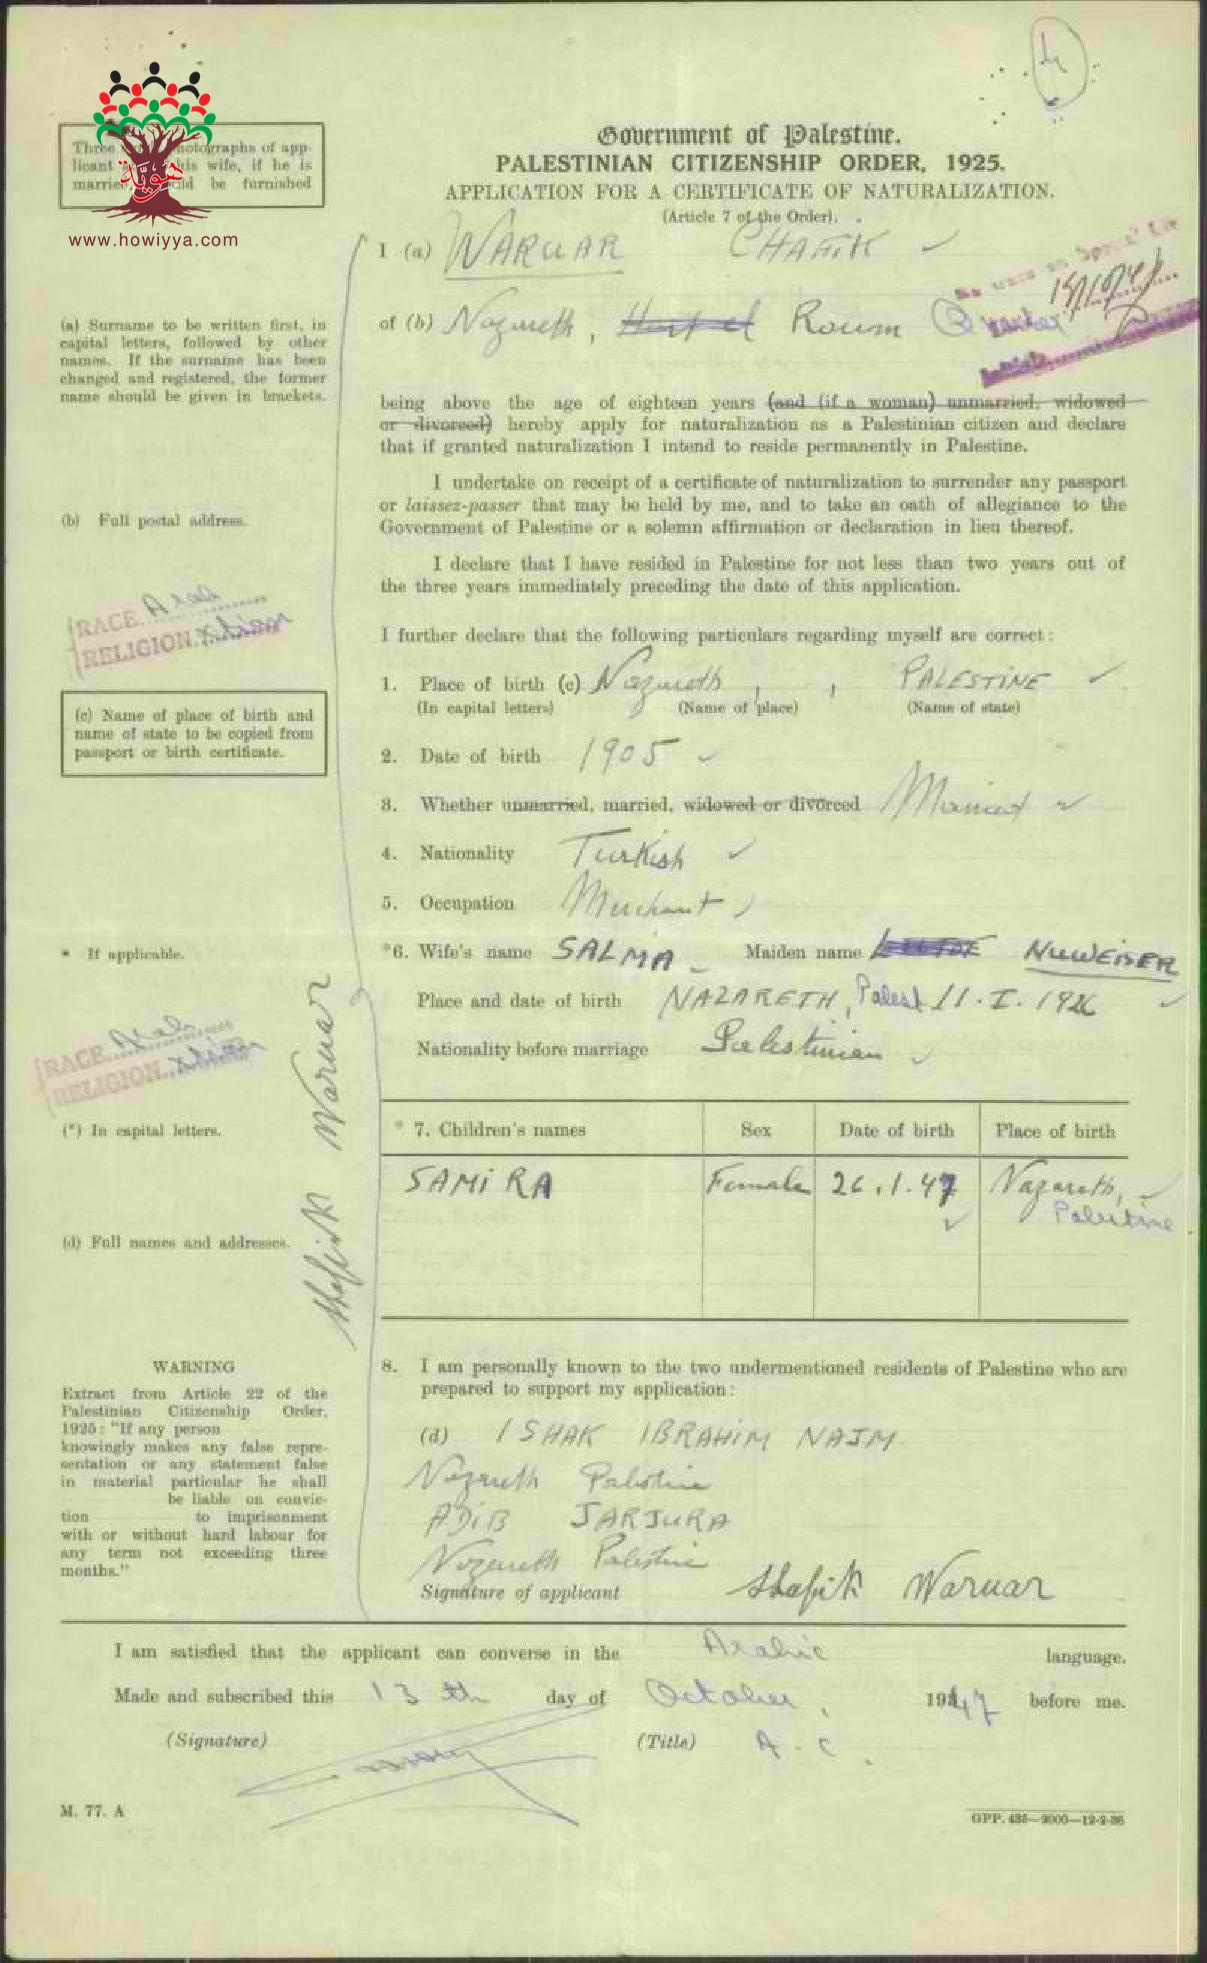 Government of Palestine.
PALESTINIAN CITIZENSHIP ORDER, 1925.
APPLICATION FOR A CERTIFICATE OF NATURALIZATION.
(Article 7 of the Order).
Three photographs of app-
licant his wife, if he is
married be furnished
هوية
www.howiyya.com
1 (a) WARUAR CHAFIK
of (b) Nazareth, Roum Quarter
(a) Surname to be written first, in
capital letters, followed by other
names. If the surname has been
changed and registered, the former
name should be given in brackets.
being above the age of eighteen years (and (if a woman) unmarried, widowed
or divorced) hereby apply for naturalization as a Palestinian citizen and declare
that if granted naturalization I intend to reside permanently in Palestine.
I undertake on receipt of a certificate of naturalization to surrender any passport
or laissez-passer that may be held by me, and to take an oath of allegiance to the
Government of Palestine or a solemn affirmation or declaration in lieu thereof.
(b) Full postal address.
I declare that I have resided in Palestine for not less than two years out of
the three years immediately preceding the date of this application.
RACE Arab
RELIGION Xtian
I further declare that the following particulars regarding myself are correct:
1. Place of birth (c) Nazareth, , PALESTINE
(In capital letters) (Name of place) (Name of state)
(c) Name of place of birth and
name of state to be copied from
passport or birth certificate.
2. Date of birth 1905
3. Whether unmarried, married, widowed or divorced Married
4. Nationality Turkish
5. Occupation Merchant
* If applicable.
*6. Wife's name SALMA Maiden name NUWEISER
Place and date of birth NAZARETH, Palest 11.I.1926
Nationality before marriage Palestinian
RACE Arab
RELIGION Xtian
Shafik Waruar
(*) In capital letters.
* 7. Children's names Sex Date of birth Place of birth
SAMIRA Female 26.1.47 Nazareth,
Palestine
(d) Full names and addresses.
8. I am personally known to the two undermentioned residents of Palestine who are
prepared to support my application:
(d) ISHAK IBRAHIM NAJM
Nazareth Palestine
ADIB JARJURA
Nazareth Palestine
Signature of applicant Shafik Waruar
WARNING
Extract from Article 22 of the
Palestinian Citizenship Order,
1925: "If any person
knowingly makes any false repre-
sentation or any statement false
in material particular he shall
be liable on convic-
tion to imprisonment
with or without hard labour for
any term not exceeding three
months."
I am satisfied that the applicant can converse in the Arabic language.
Made and subscribed this 13th day of October, 1947 before me.
(Signature) (Title) A.C.
M. 77. A
GPP. 435—2000—12-2-36